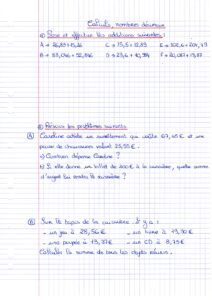 Calculs, nombres décimaux
a) Pose et effectue les additions suivantes :
A = 26,83 + 15,46 C = 15,5 + 12,89 E = 302,6 +
B = D = 23,6 +
b) Résous les problèmes suivants
(A) Caroline achète un survêtement qui coûte 67,45 € et une
paire de chaussures valant 25,55 €.
a) Combien dépense Caroline ?
b) Si elle donne un billet de 200 € à la caissière, quelle somme
d'argent lui rendra la caissière ?
(B) Sur le tapis de la caissière, il y a :
- un jeu à 28,56 € - un livre à 13,90 €
- une poupée à 19,37 € - un CD à 8,75 €
Calcule la somme de tous les objets réunis.